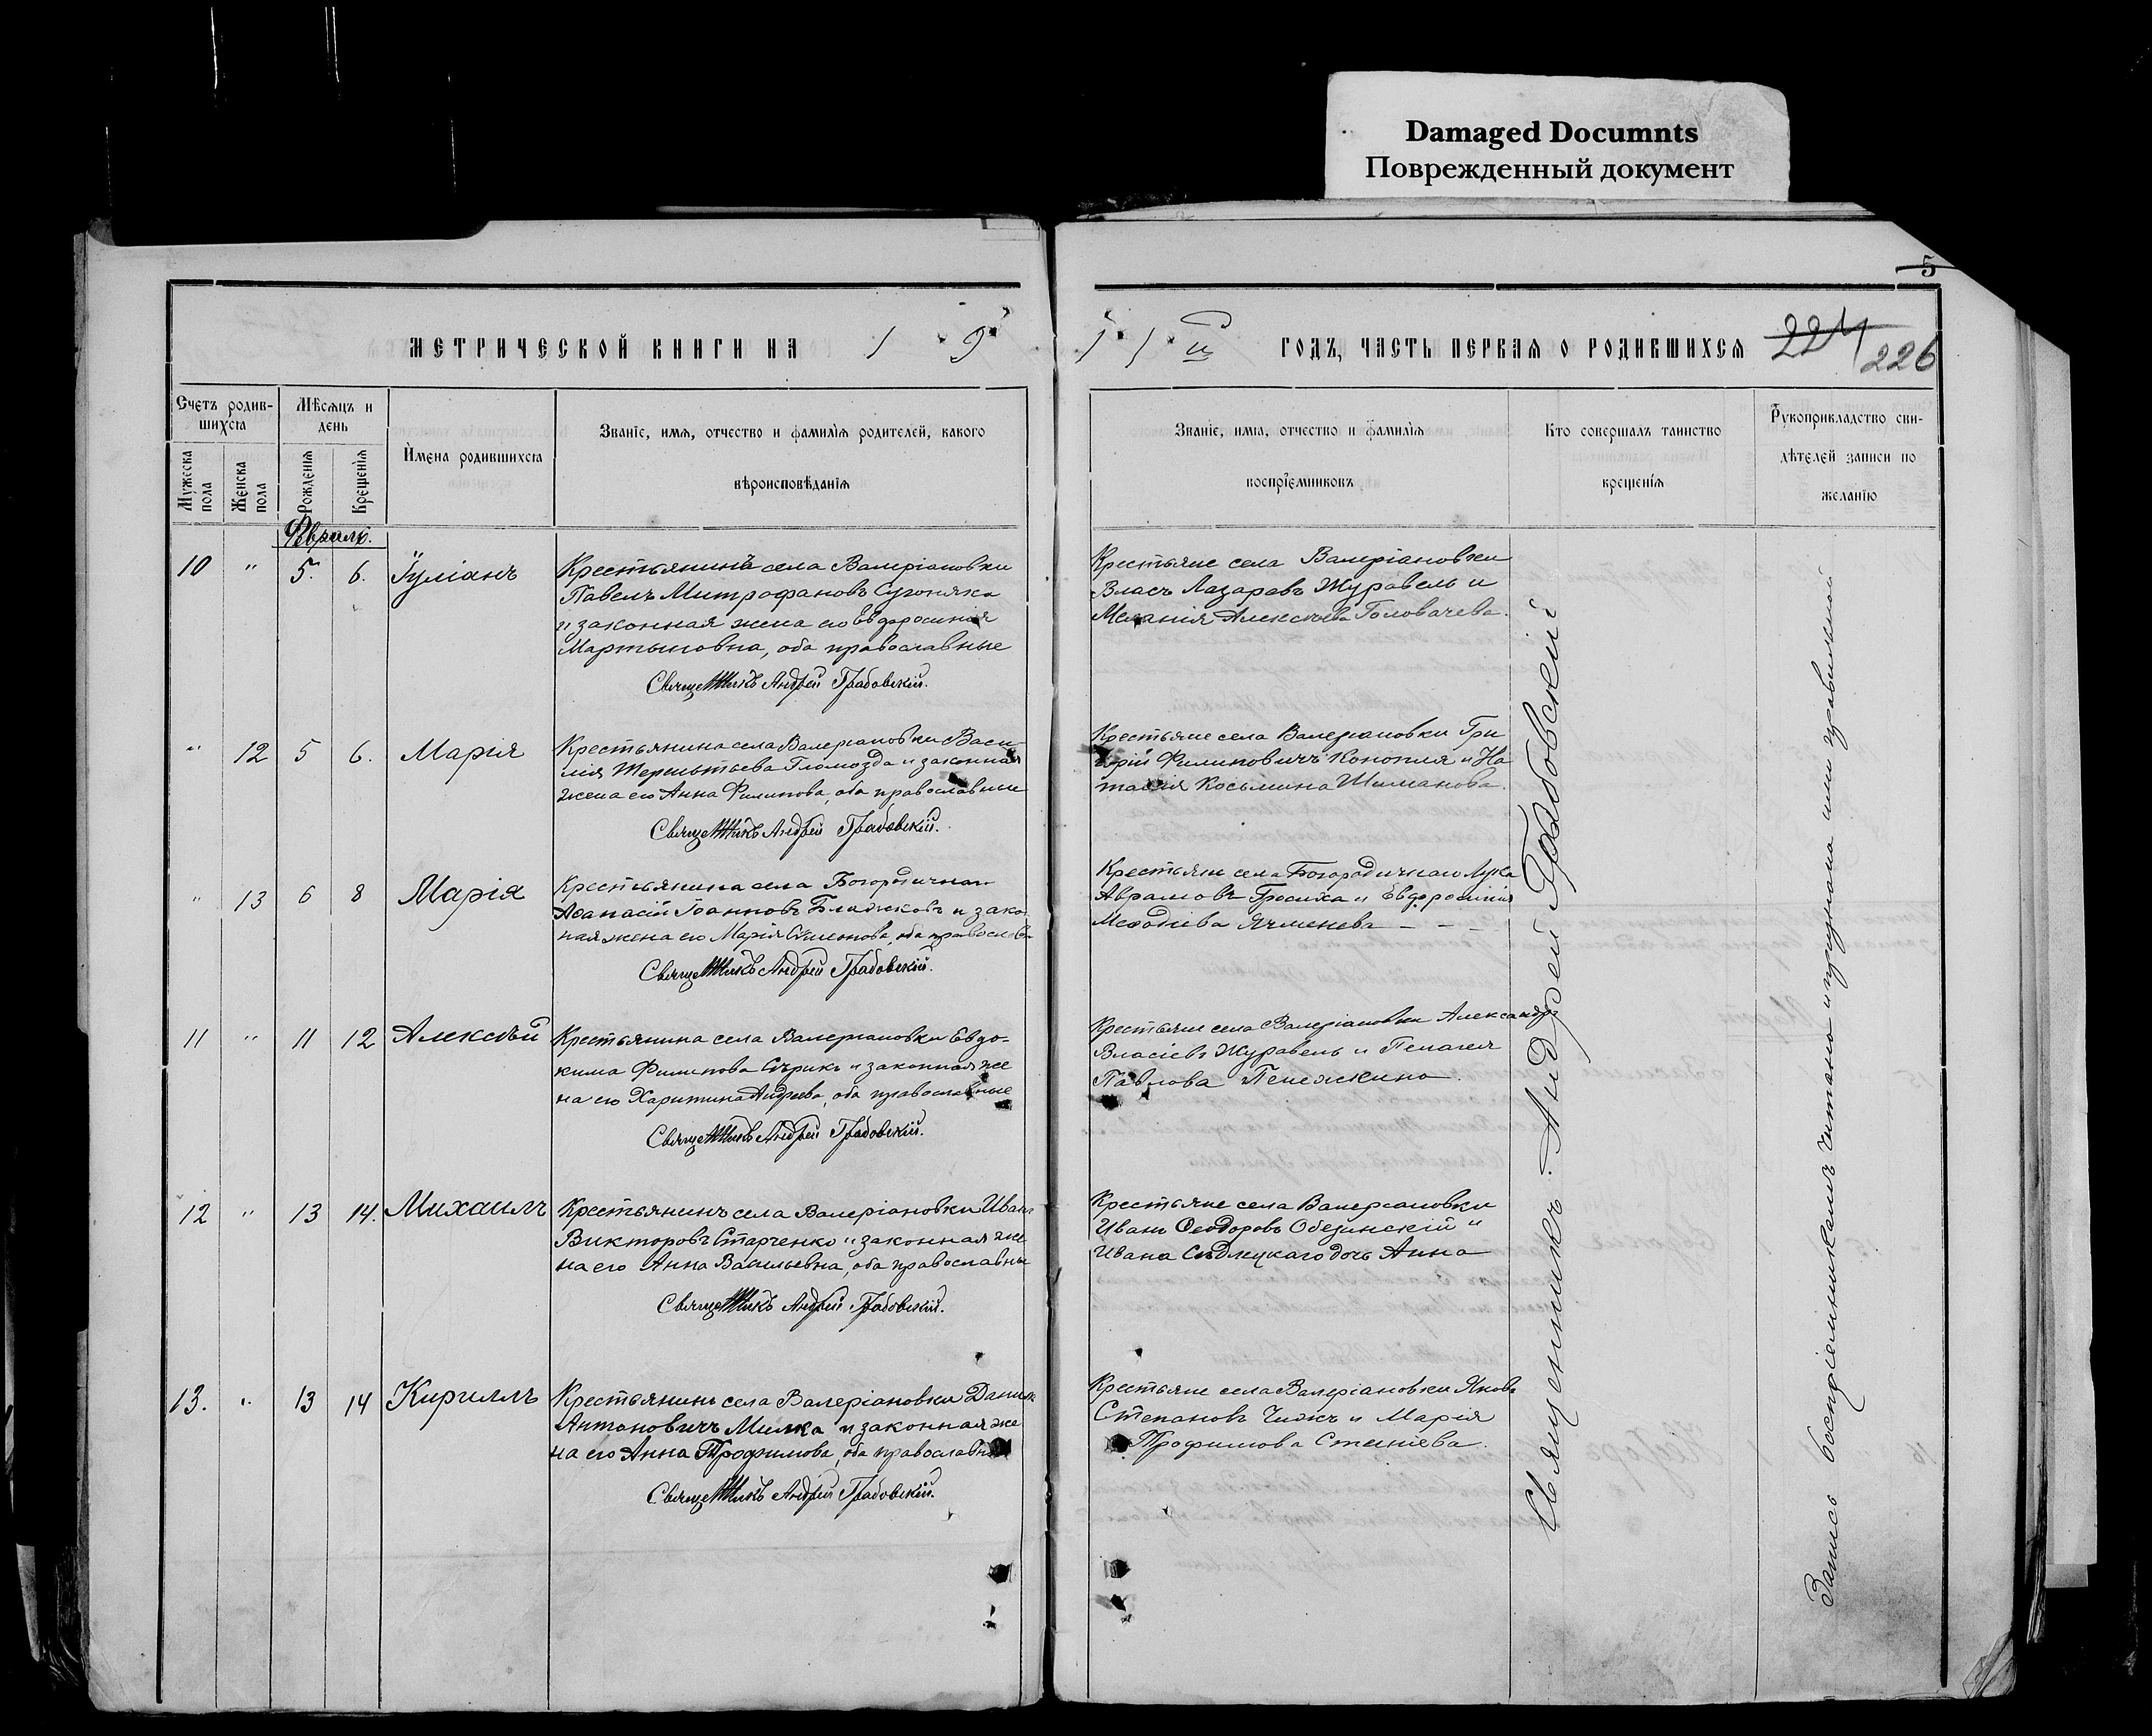 Damaged Documnts
Поврежденный документ
5
МЕТРИЧЕСКОЙ КНИГИ НА 1 9
1 1 й ГОДЪ, ЧАСТЬ ПЕРВАЯ О РОДИВШИХСЯ
224
226
Счетъ родив-
шихся
Мѣсяцъ и
день
Мужеска
пола
Женска
пола
Рожденія
Крещенія
Имена родившихся
Званіе, имя, отчество и фамилія родителей, какого
вѣроисповѣданія
Званіе, имя, отчество и фамилія
воспріемниковъ
Кто совершалъ таинство
крещенія
Рукоприкладство сви-
дѣтелей записи по
желанію
Февраль.
10 " 5. 6. Іуліанъ
Крестьянинъ села Валеріановки
Павелъ Митрофановъ Сугоняка
и законная жена его Евфросинія
Мартыновна, оба православные
Священникъ Андрей Грабовскій.
Крестьяне села Валеріановки
Власъ Лазаревъ Журавель и
Меланія Алексѣева Головачева.
" 12 5 6. Марія
Крестьянина села Валеріановки Васи
лія Терентьева Гломозда и законная
жена его Анна Филипова, оба православные
Священникъ Андрей Грабовскій.
Крестьяне села Валеріановки Гри
горій Филиповичъ Конопля и На
талія Косьмина Шиманова.
" 13 6 8 Марія
Крестьянина села Богородичнаго
Аѳанасій Іоанновъ и зако
ная жена его Марія Симонова, оба православн
Священникъ Андрей Грабовскій.
Крестьяне села Богородичнаго Лука
Аврамовъ и Евфросинія
Меѳодіева Ячменева - - -
11 " 11 12 Алексѣй
Крестьянина села Валеріановки Евдо-
кима Филипова Сѣрикъ и законная же
на его Харитина Андреева, оба православные
Священникъ Андрей Грабовскій.
Крестьяне села Валеріановки Александръ
Власіевъ Журавель и Пелагея
Павлова
12 " 13 14. Михаилъ
Крестьянинъ села Валеріановки Иванъ
Викторовъ Старченко и законная же
на его Анна Васильевна, оба православны
Священникъ Андрей Грабовскій.
Крестьяне села Валеріановки
Иванъ Ѳеодоровъ Обединскій и
Ивана Сѣдлецкаго дочь Анна
13. " 13 14 Кириллъ
Крестьянинъ села Валеріановки Данило
Антоновичъ Милка и законная же
на его Анна Трофимова, оба православны
Священникъ Андрей Грабовскій.
Крестьяне села Валеріановки Яковъ
Степановъ Чижъ и Марія
Трофимова
Священникъ Андрей Грабовскій
Запись воспріемникамъ читана и признана ими правильной